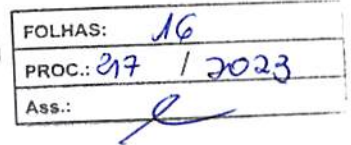 FOLHAS: 16
PROC.: 217 / 2023
Ass.: